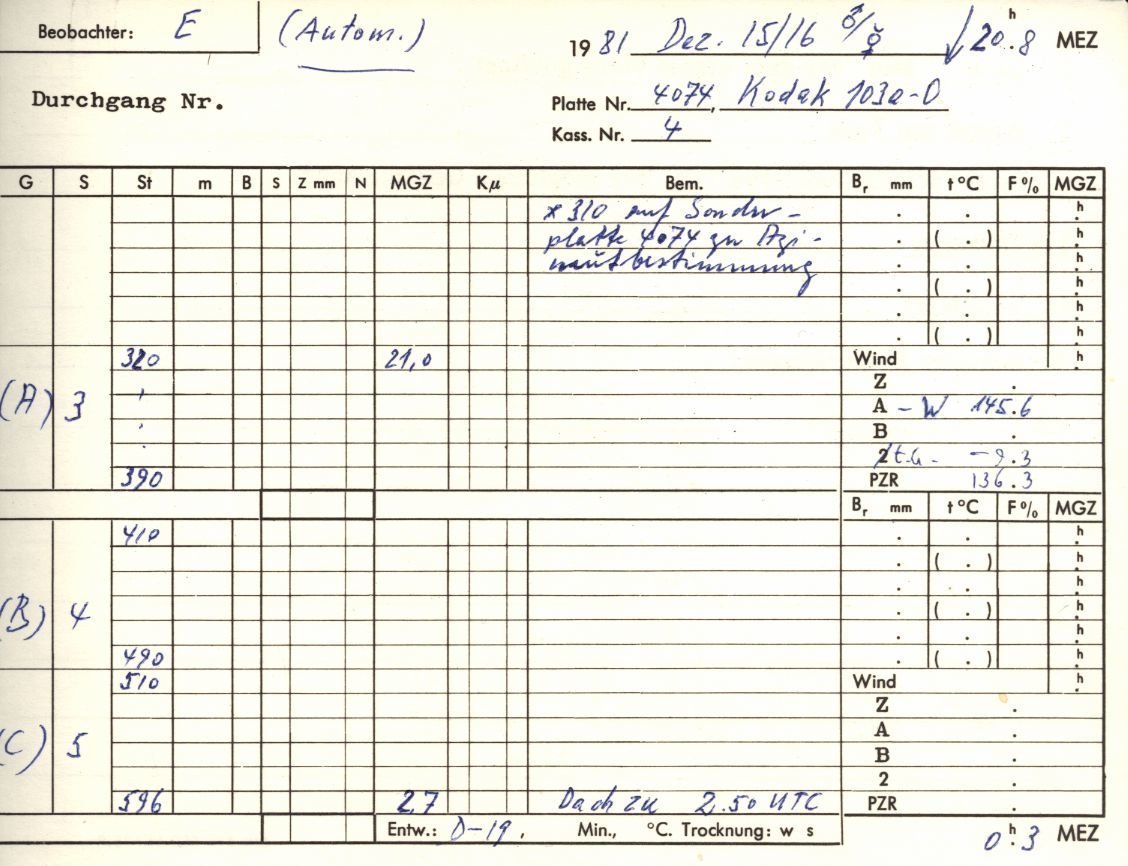 Beobachter: E (Autom.) 19 81 Dez. 15/16 ♂/☿ 20.ʰ8 MEZ
Durchgang Nr. Platte Nr. 4074, Kodak 103a-O
Kass. Nr. 4
G S St m B S Z mm N MGZ Kμ Bem. Bᵣ mm t °C F % MGZ
* 310 auf Sonder- . . h.
platte 4074 zu Azi- . ( . ) h.
mutbestimmung . . h.
. ( . ) h.
. . h.
. ( . ) h.
320 21,0 Wind h.
Z .
(A) 3 A - W 145.6
B .
2 -9.3
390 PZR 136.3
Bᵣ mm t °C F % MGZ
410 . . h.
. ( . ) h.
. . h.
(B) 4 . ( . ) h.
. . h.
490 . ( . ) h.
510 Wind h.
Z .
A .
(C) 5 B .
2 .
596 2,7 Dach zu 2.50 UTC PZR .
Entw.: D-19, Min., °C. Trocknung: w s
0.ʰ3 MEZ